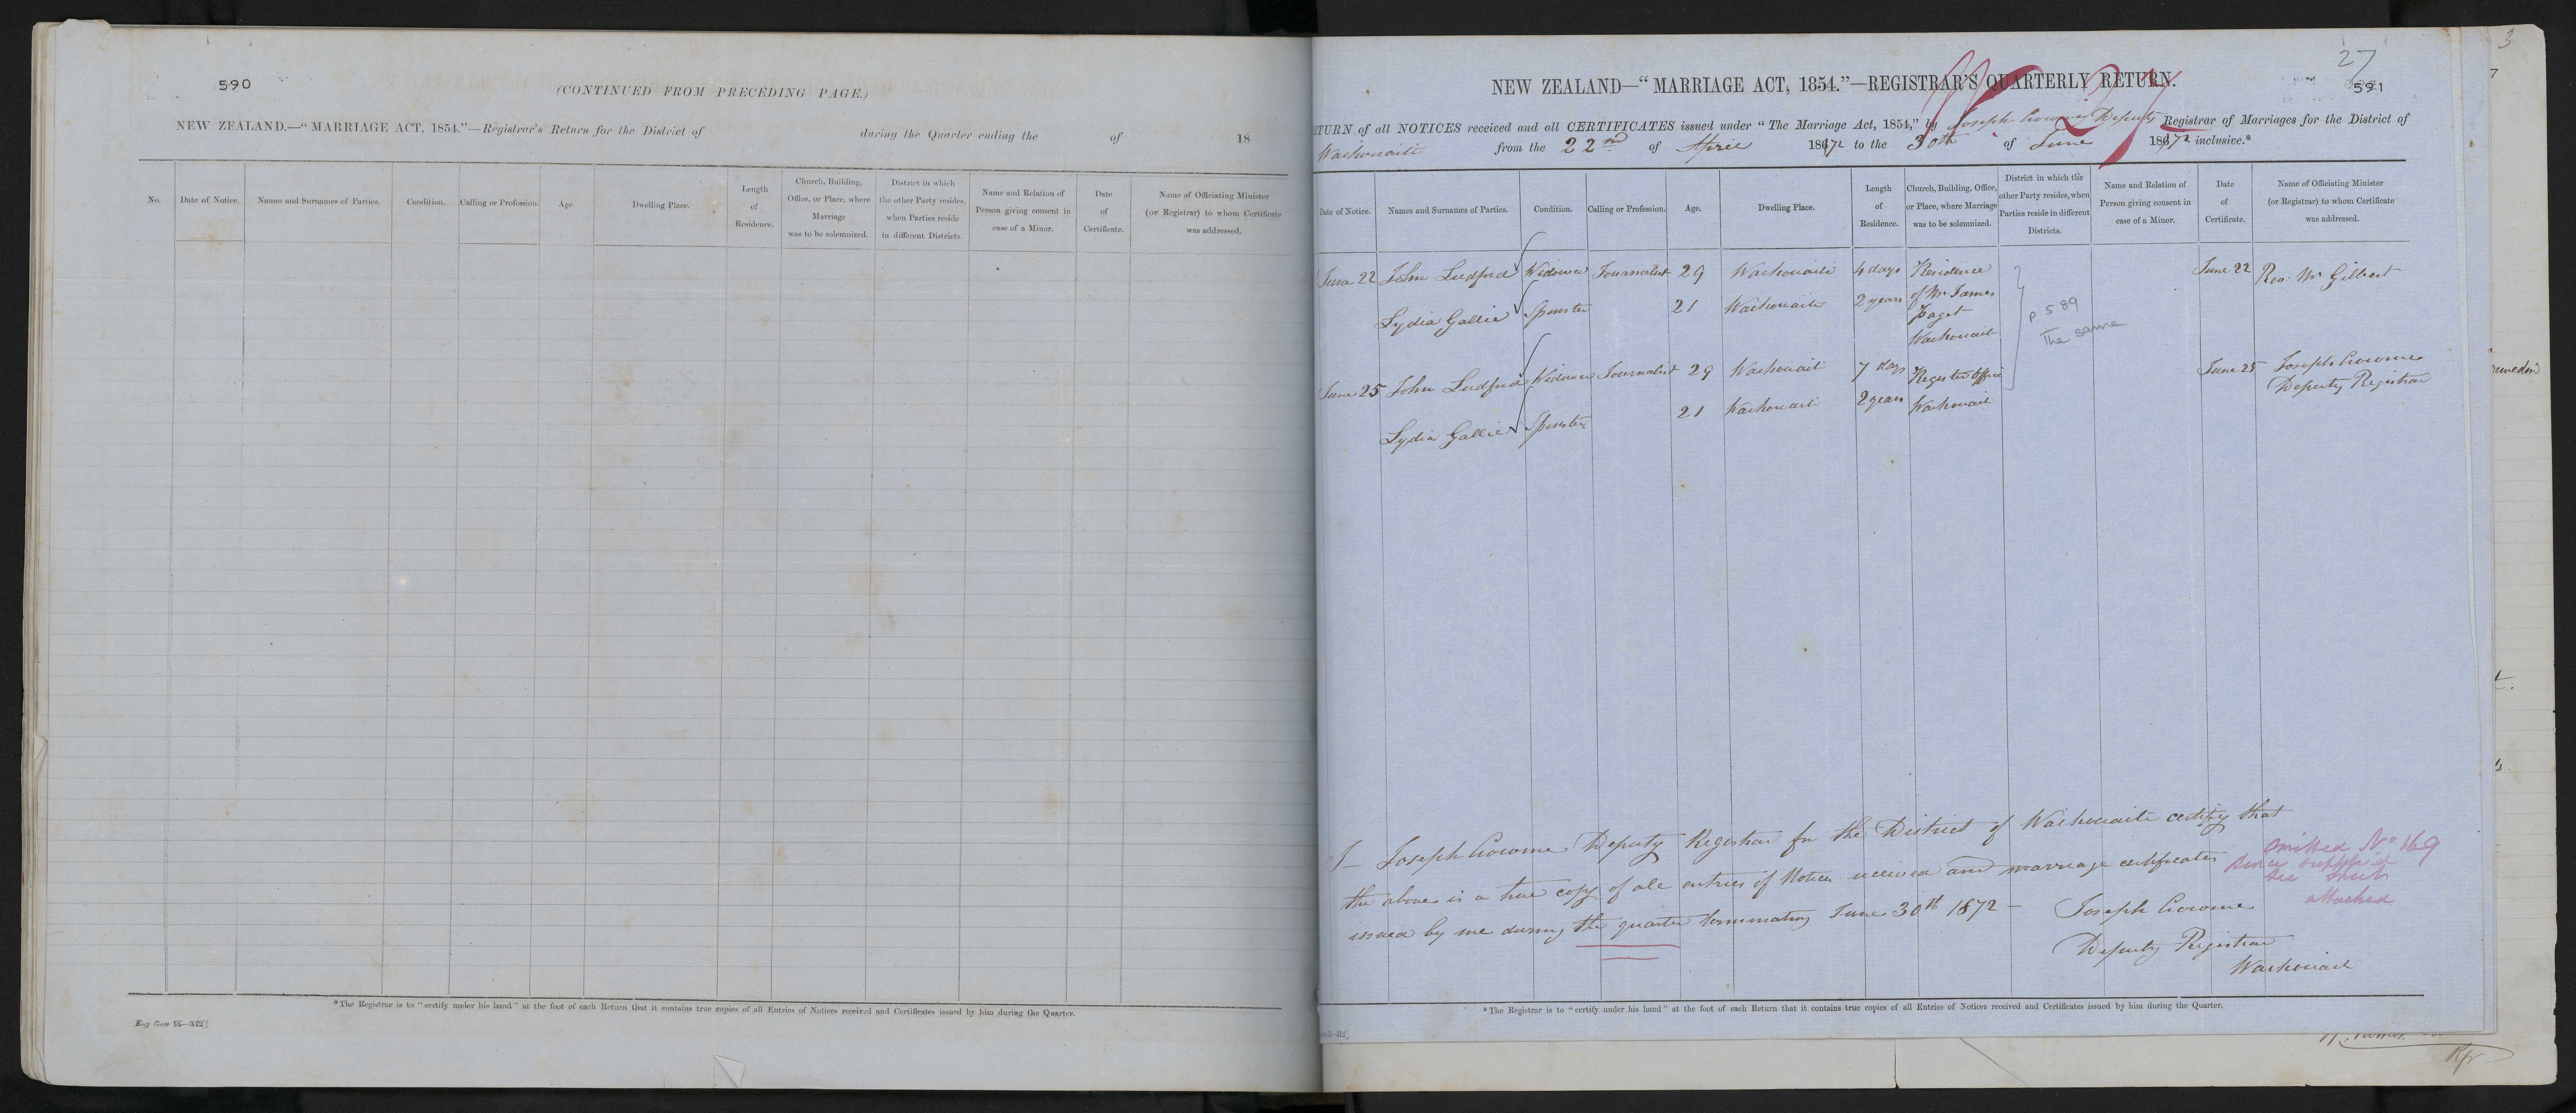 590
(CONTINUED FROM PRECEDING PAGE.)
NEW ZEALAND.—"MARRIAGE ACT, 1854."—Registrar's Return for the District of during the Quarter ending the of 18
No. Date of Notice. Names and Surnames of Parties. Condition. Calling or Profession. Age. Dwelling Place. Length of Residence. Church, Building, Office, or Place, where Marriage was to be solemnized. District in which the other Party resides, when Parties reside in different Districts. Name and Relation of Person giving consent in case of a Minor. Date of Certificate. Name of Officiating Minister (or Registrar) to whom Certificate was addressed.
*The Registrar is to "certify under his hand" at the foot of each Return that it contains true copies of all Entries of Notices received and Certificates issued by him during the Quarter.
27
591
NEW ZEALAND—"MARRIAGE ACT, 1854."—REGISTRAR'S QUARTERLY RETURN.
TURN of all NOTICES received and all CERTIFICATES issued under "The Marriage Act, 1854," by Joseph Crowme Deputy Registrar of Marriages for the District of
Waikouaiti from the 22nd of April 1872 to the 30th of June 1872 inclusive.*
Date of Notice. Names and Surnames of Parties. Condition. Calling or Profession. Age. Dwelling Place. Length of Residence. Church, Building, Office, or Place, where Marriage was to be solemnized. District in which the other Party resides, when Parties reside in different Districts. Name and Relation of Person giving consent in case of a Minor. Date of Certificate. Name of Officiating Minister (or Registrar) to whom Certificate was addressed.
June 22 John Ludford Widower Journalist 29 Waikouaiti 4 days Residence June 22 Rev. Mr Gilbert
Lydia Gallie Spinster 21 Waikouaiti 2 years of Mr James
Paget
Waikouaiti
p 589
The same
June 25 John Ludford Widower Journalist 29 Waikouaiti 7 days Register Office June 25 Joseph Crowme
Deputy Registrar
Lydia Gallie Spinster 21 Waikouaiti 2 years Waikouaiti
I— Joseph Crowme Deputy Registrar for the District of Waikouaiti certify that
the above is a true copy of all entries of Notices received and marriage certificates
issued by me during the quarter terminating June 30th 1872 —
Joseph Crowme
Deputy Registrar
Waikouaiti
omitted No 169
since supplied
see sheet
attached
*The Registrar is to "certify under his hand" at the foot of each Return that it contains true copies of all Entries of Notices received and Certificates issued by him during the Quarter.